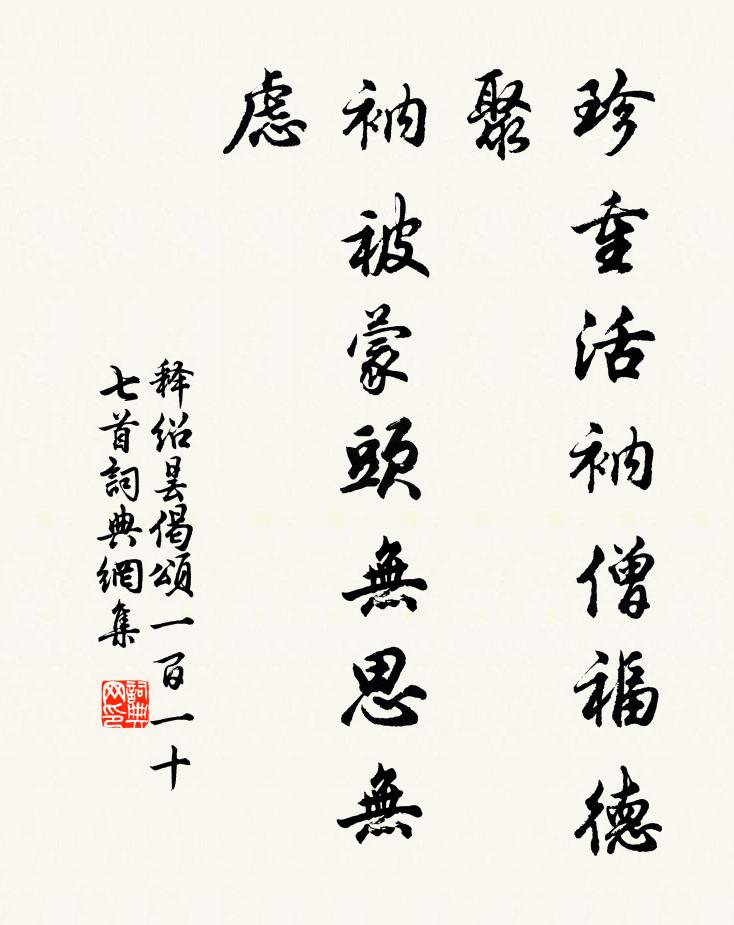 珍重活衲僧福德
聚
衲被蒙頭無思無
慮
释紹曇偈頌一百一十
七首詞典網集
詞典
网印